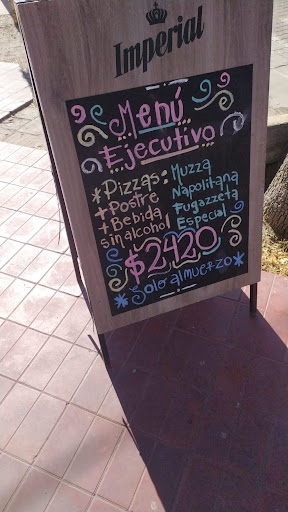 Imperial
Menú
Ejecutivo
*Pizzas: Muzza
+Postre Napolitana
+Bebida Fugazzeta
sin alcohol Especial
$2420
*Solo almuerzo*